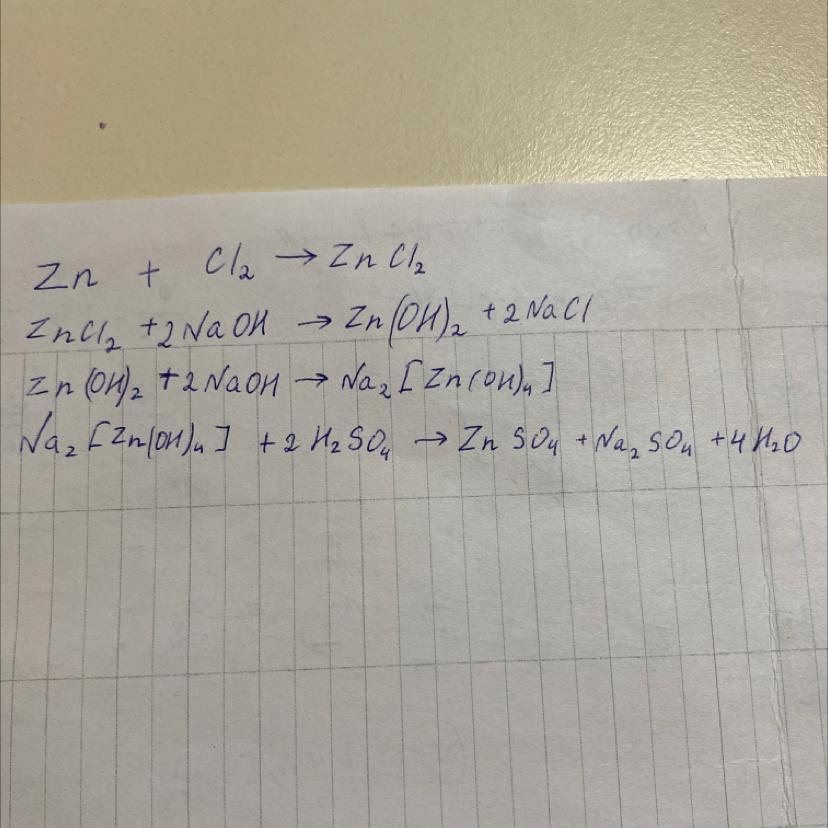 Zn + Cl₂ → ZnCl₂
ZnCl₂ + 2NaOH → Zn(OH)₂ + 2NaCl
Zn(OH)₂ + 2NaOH → Na₂[Zn(OH)₄]
Na₂[Zn(OH)₄] + 2H₂SO₄ → ZnSO₄ + Na₂SO₄ + 4H₂O